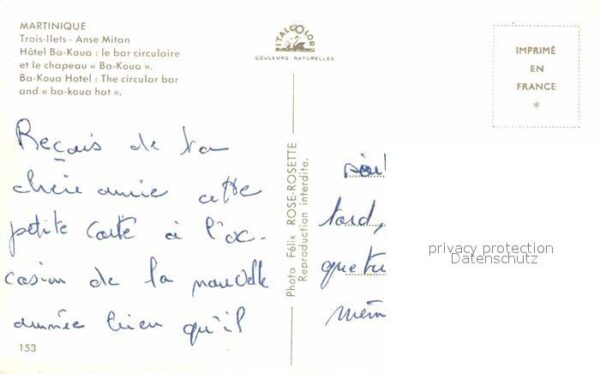 MARTINIQUE
Trois-Ilets - Anse Mitan
Hôtel Ba-Koua : le bar circulaire
et le chapeau « Ba-Koua ».
Ba-Koua Hotel : The circular bar
and « ba-koua hat ».
ITALCOLOR
COULEURS NATURELLES
IMPRIMÉ
EN
FRANCE
*
Reçois de ta
chère amie cette
petite carte à l'oc-
casion de la nouvelle
année bien qu'il
153
Photo Félix ROSE-ROSETTE
Reproduction interdite.
tard,
que tu
mêm
privacy protection
Datenschutz